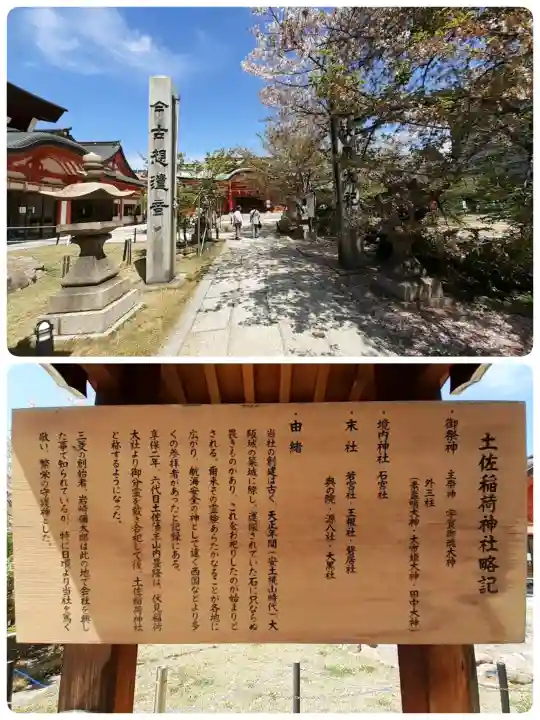 土佐稲荷神社略記
・御祭神 主祭神 宇賀御魂大神
外三柱
・境内神社 石宮社
・末社 若宮社 玉根社 磐居社
奥の院・源入社・大黒社
・由緒
当社の創建は古く、天正年間(安土桃山時代)大
阪城の築城に際し運搬されていた石に只ならぬ
畏きものがあり、これをお祀りしたのが始まりと
される。爾来その霊験あらたかなることが各地に
広がり、航海安全の神として遠く西国などより多
くの参拝者があったと記録にある。
享保二年、六代目土佐藩主山内豊隆は、伏見稲荷
大社より御分霊を戴き合祀して後、土佐稲荷神社
と称するようになった。
三菱の創始者、岩崎彌太郎は此の地で会社を興し
た事で知られているが、特に日頃より当社を篤く
敬い、繁栄の守護神とした。